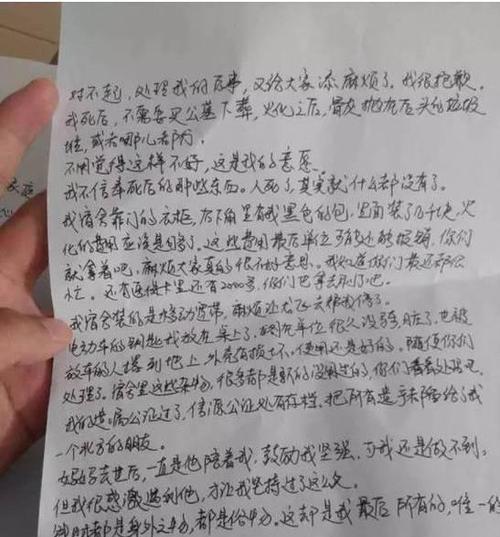 对不起,处理我的后事,又给大家添麻烦了。我很抱歉。
我死后,不需要买公墓下葬,火化之后,骨灰抛在后头的垃圾
堆,或者哪儿都行。
不用觉得这样不好,这是我的意愿。
我不信奉死后的那些东西。人死了,其实就什么都没有了。
我宿舍靠门的衣柜,右下角里有我黑色的包,里面装了几千块,火
化的费用应该是够了。这些费用最后单位可能还能报销,你们
就拿着吧,麻烦大家真的很不好意思。我知道你们最近都很
忙。还有医保卡里还有2000多,你们也拿去用了吧。
我宿舍装的是移动宽带,麻烦
电动车的钥匙我放在桌上了。车在单位很久没骑了,也被
放车的人撞到地上,外壳有损坏,使用还是好的。随便你们
处理了。宿舍里这些杂物,很多都是新的没用过的,你们看着处理吧。
我的遗嘱公证过了,信源公证处有存档。把所有遗产都留给了我
一个北方的朋友。
妈妈去世后,一直是他陪着我,鼓励我坚强,可我还是做不到。
但我很感激遇到他,才让我坚持过了这么久。
钱财都是身外之物,都是俗物。这却是我最后所有的,唯一的